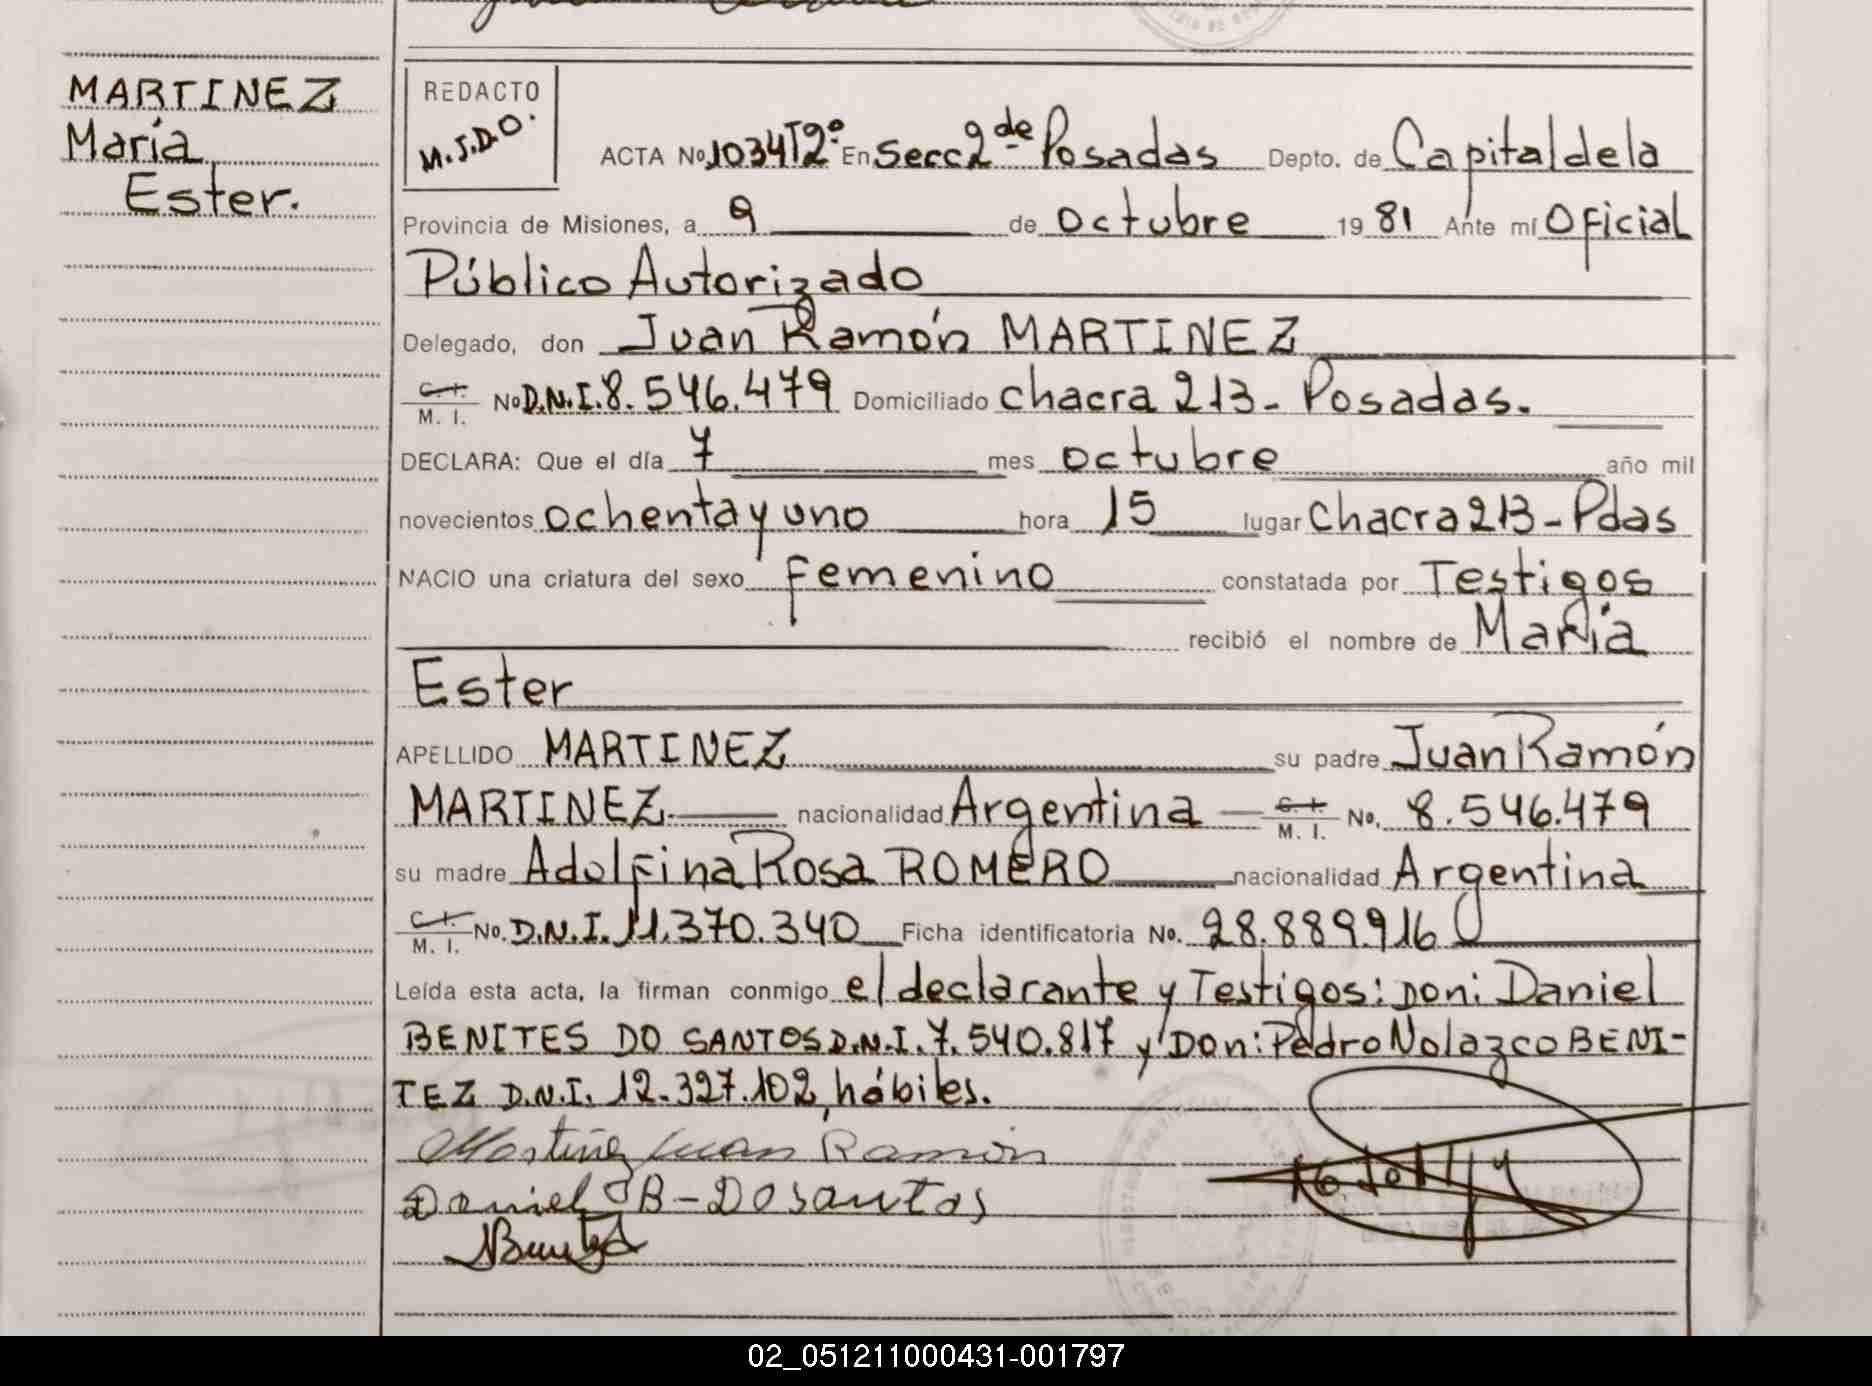 MARTINEZ
María
Ester.
REDACTO
M.J.D.O.
ACTA No 1034 T2º En Secc 2de Posadas Depto. de Capital de la
Provincia de Misiones, a 9 de octubre 1981 Ante mí Oficial
Público Autorizado
Delegado, don Juan Ramón MARTINEZ
C. I. M. I. No D.N.I. 8.546.479 Domiciliado chacra 213 - Posadas.
DECLARA: Que el día 7 mes octubre año mil
novecientos ochenta y uno hora 15 lugar Chacra 213 - Pdas
NACIO una criatura del sexo femenino constatada por Testigos
recibió el nombre de María
Ester
APELLIDO MARTINEZ su padre Juan Ramón
MARTINEZ. nacionalidad Argentina C. I. M. I. No. 8.546.479
su madre Adolfina Rosa ROMERO nacionalidad Argentina
C. I. M. I. No. D.N.I. 11.370.340 Ficha identificatoria No. 28.889.916
Leída esta acta, la firman conmigo el declarante y Testigos: Don: Daniel
BENITES DO SANTOS D.N.I. 7.540.817 y Don: Pedro Nolazco BENI-
TEZ D.N.I. 12.327.102, hábiles.
Martinez Juan Ramón
Daniel B - Dosantos
02_051211000431-001797